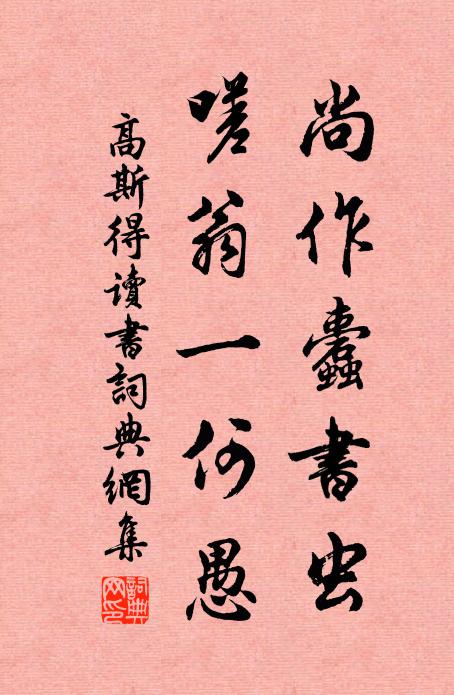 尚作蠹書虫
嗟翁一何愚
高斯得讀書詞典網集
詞典網印